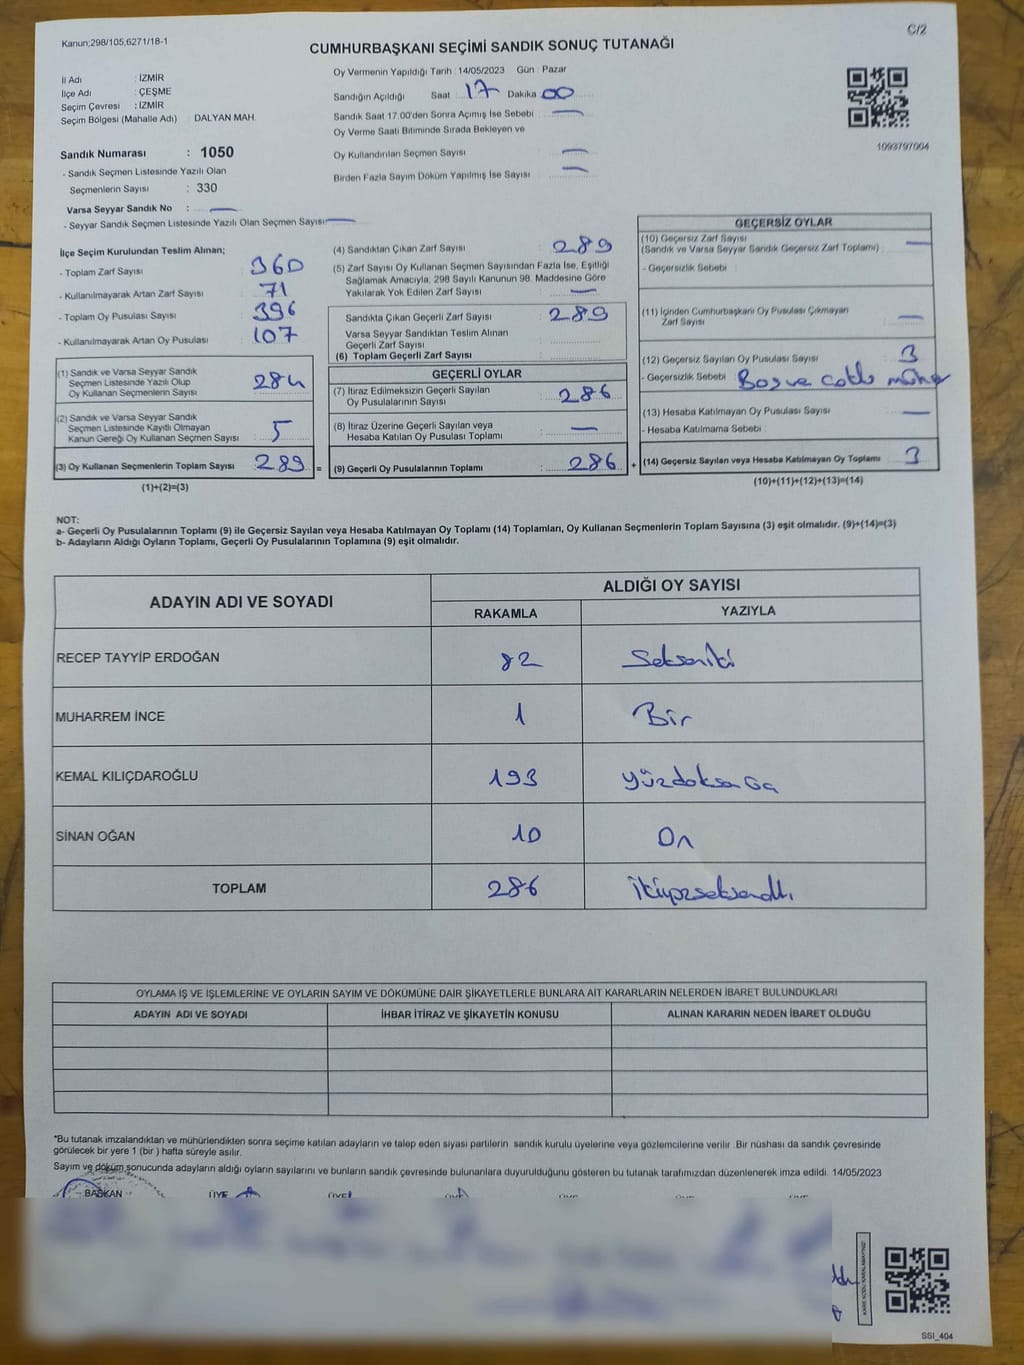 Kanun;298/105,6271/18-1
C/2
CUMHURBAŞKANI SEÇİMİ SANDIK SONUÇ TUTANAĞI
İl Adı : İZMİR
İlçe Adı : ÇEŞME
Seçim Çevresi : İZMİR
Seçim Bölgesi (Mahalle Adı) DALYAN MAH.
Sandık Numarası : 1050
- Sandık Seçmen Listesinde Yazılı Olan
Seçmenlerin Sayısı : 330
Varsa Seyyar Sandık No :
- Seyyar Sandık Seçmen Listesinde Yazılı Olan Seçmen Sayısı
Oy Vermenin Yapıldığı Tarih : 14/05/2023 Gün : Pazar
Sandığın Açıldığı Saat 17 Dakika 00
Sandık Saat 17.00'den Sonra Açımış İse Sebebi
Oy Verme Saati Bitiminde Sırada Bekleyen ve
Oy Kullandırılan Seçmen Sayısı
Birden Fazla Sayım Döküm Yapılmış İse Sayısı
1093797004
İlçe Seçim Kurulundan Teslim Alınan;
- Toplam Zarf Sayısı 360
- Kullanılmayarak Artan Zarf Sayısı 71
- Toplam Oy Pusulası Sayısı 396
- Kullanılmayarak Artan Oy Pusulası 107
(1) Sandık ve Varsa Seyyar Sandık
Seçmen Listesinde Yazılı Olup
Oy Kullanan Seçmenlerin Sayısı 284
(2) Sandık ve Varsa Seyyar Sandık
Seçmen Listesinde Kayıtlı Olmayan
Kanun Gereği Oy Kullanan Seçmen Sayısı : 5
(3) Oy Kullanan Seçmenlerin Toplam Sayısı 289 =
(1)+(2)=(3)
(4) Sandıktan Çıkan Zarf Sayısı : 289
(5) Zarf Sayısı Oy Kullanan Seçmen Sayısından Fazla İse, Eşitliği
Sağlamak Amacıyla; 298 Sayılı Kanunun 98. Maddesine Göre
Yakılarak Yok Edilen Zarf Sayısı :
Sandıkta Çıkan Geçerli Zarf Sayısı : 289
Varsa Seyyar Sandıktan Teslim Alınan
Geçerli Zarf Sayısı :
(6) Toplam Geçerli Zarf Sayısı :
GEÇERLİ OYLAR
(7) İtiraz Edilmeksizin Geçerli Sayılan
Oy Pusulalarının Sayısı : 286
(8) İtiraz Üzerine Geçerli Sayılan veya
Hesaba Katılan Oy Pusulası Toplamı :
(9) Geçerli Oy Pusulalarının Toplamı : 286 +
GEÇERSİZ OYLAR
(10) Geçersiz Zarf Sayısı
(Sandık ve Varsa Seyyar Sandık Geçersiz Zarf Toplamı) :
- Geçersizlik Sebebi :
(11) İçinden Cumhurbaşkanı Oy Pusulası Çıkmayan
Zarf Sayısı :
(12) Geçersiz Sayılan Oy Pusulası Sayısı : 3
- Geçersizlik Sebebi : Boş ve mühür
(13) Hesaba Katılmayan Oy Pusulası Sayısı :
- Hesaba Katılmama Sebebi :
(14) Geçersiz Sayılan veya Hesaba Katılmayan Oy Toplamı : 3
(10)+(11)+(12)+(13)=(14)
NOT:
a- Geçerli Oy Pusulalarının Toplamı (9) ile Geçersiz Sayılan veya Hesaba Katılmayan Oy Toplamı (14) Toplamları, Oy Kullanan Seçmenlerin Toplam Sayısına (3) eşit olmalıdır. (9)+(14)=(3)
b- Adayların Aldığı Oyların Toplamı, Geçerli Oy Pusulalarının Toplamına (9) eşit olmalıdır.
ADAYIN ADI VE SOYADI
ALDIĞI OY SAYISI
RAKAMLA YAZIYLA
RECEP TAYYİP ERDOĞAN 82 Seksen iki
MUHARREM İNCE 1 Bir
KEMAL KILIÇDAROĞLU 193 yüzdoksanüç
SİNAN OĞAN 10 On
TOPLAM 286 İkiyüzseksenaltı
OYLAMA İŞ VE İŞLEMLERİNE VE OYLARIN SAYIM VE DÖKÜMÜNE DAİR ŞİKAYETLERLE BUNLARA AİT KARARLARIN NELERDEN İBARET BULUNDUKLARI
ADAYIN ADI VE SOYADI İHBAR İTİRAZ VE ŞİKAYETİN KONUSU ALINAN KARARIN NEDEN İBARET OLDUĞU
*Bu tutanak imzalandıktan ve mühürlendikten sonra seçime katılan adayların ve talep eden siyasi partilerin sandık kurulu üyelerine veya gözlemcilerine verilir .Bir nüshası da sandık çevresinde
görülecek bir yere 1 (bir ) hafta süreyle asılır.
Sayım ve döküm sonucunda adayların aldığı oyların sayılarını ve bunların sandık çevresinde bulunanlara duyurulduğunu gösteren bu tutanak tarafımızdan düzenlenerek imza edildi. 14/05/2023
BAŞKAN ÜYE ÜYE
KARE KODU KARALAMAYINIZ!
SSI_404